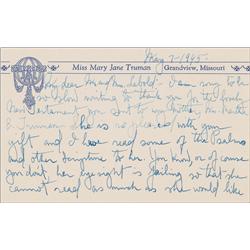 May 7-1945.
Miss Mary Jane Truman Grandview, Missouri
My dear Mr and Mrs. I am sorry to be
so slow writing to thank you for the lovely
New Testament you sent to my Mother, Mrs Martha
E Truman. She is so pleased with your
gift and I have read some of the Psalms
and other Scripture to her. You know, or of course
you don't, her eye sight is failing so that she
cannot read as much as she would like